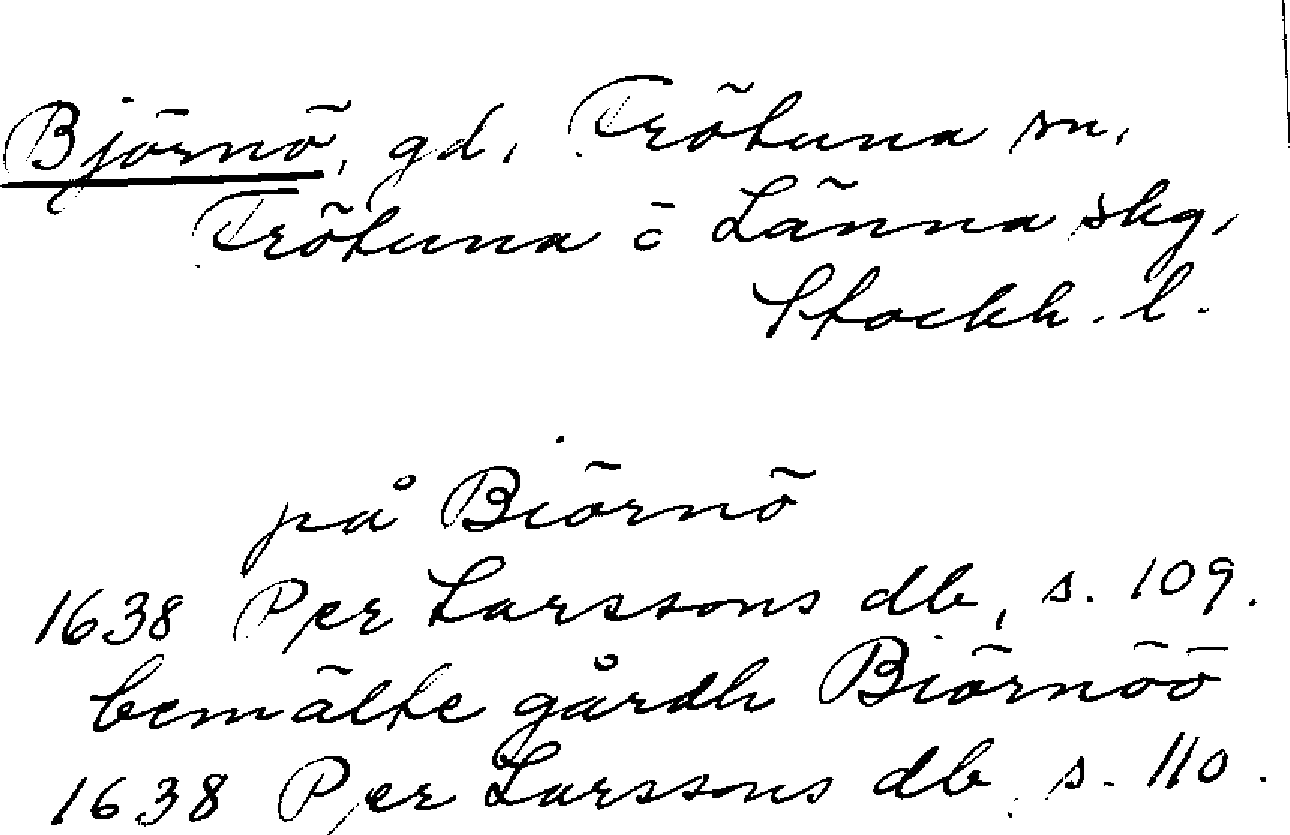 Björnö, gd, Frötuna sn,
Frötuna o Länna skg,
Stockh. l.
på Biörnö
1638 Per Larssons db, s. 109.
bemälte gårdh Biörnöö
1638 Per Larssons db, s. 110.